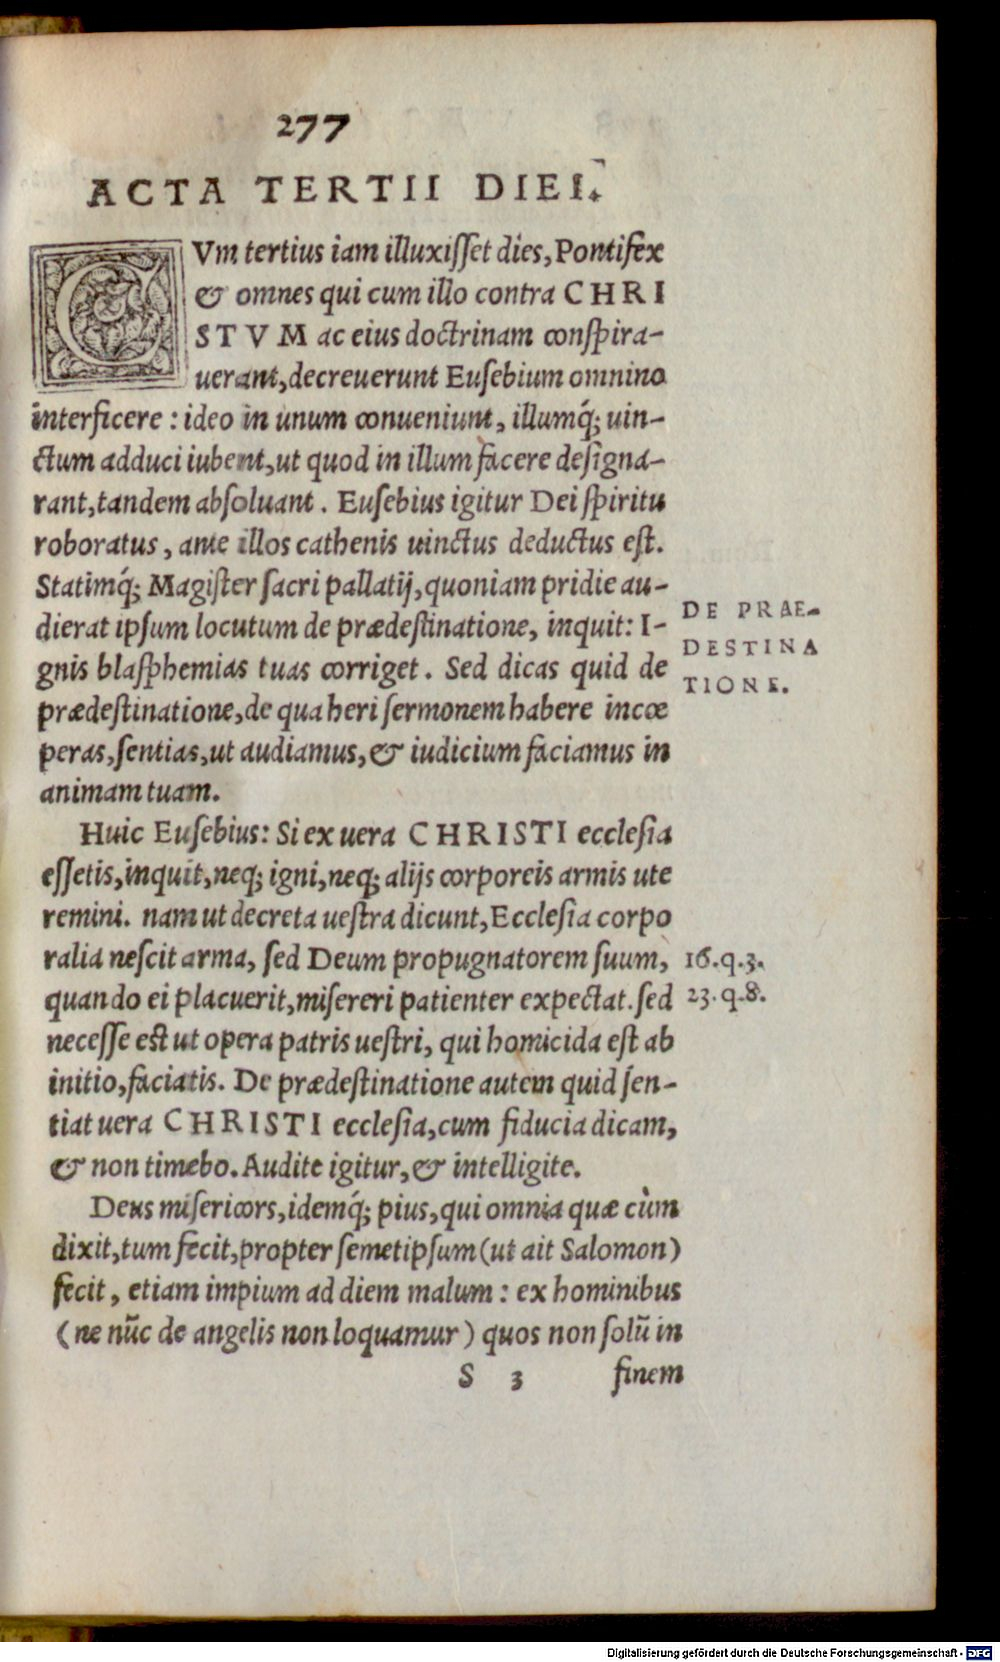 277
ACTA TERTII DIEI.
CVm tertius iam illuxiſſet dies, Pontifex
& omnes qui cum illo contra CHRI
STVM ac eius doctrinam conſpira-
uerant, decreuerunt Euſebium omnino
interficere : ideo in unum conueniunt, illumq́; uin-
ctum adduci iubent, ut quod in illum facere deſigna-
rant, tandem abſoluant. Euſebius igitur Dei ſpiritu
roboratus, ante illos cathenis uinctus deductus eſt.
Statimq́; Magiſter ſacri pallatij, quoniam pridie au-
dierat ipſum locutum de prædeſtinatione, inquit: I-
gnis blaſphemias tuas corriget. Sed dicas quid de
prædeſtinatione, de qua heri ſermonem habere incœ
peras, ſentias, ut audiamus, & iudicium faciamus in
animam tuam.
DE PRAE-
DESTINA
TIONE.
Huic Euſebius: Si ex uera CHRISTI eccleſia
eſſetis, inquit, neq; igni, neq; alijs corporeis armis ute
remini. nam ut decreta ueſtra dicunt, Eccleſia corpo
ralia neſcit arma, ſed Deum propugnatorem ſuum,
quando ei placuerit, miſereri patienter expectat. ſed
neceſſe est ut opera patris ueſtri, qui homicida eſt ab
initio, faciatis. De prædeſtinatione autem quid ſen-
tiat uera CHRISTI eccleſia, cum fiducia dicam,
& non timebo. Audite igitur, & intelligite.
16.q.3.
23.q.8.
Deus miſericors, idemq́; pius, qui omnia quæ cùm
dixit, tum fecit, propter ſemetipſum (ut ait Salomon)
fecit, etiam impium ad diem malum : ex hominibus
(ne nūc de angelis non loquamur) quos non ſolū in
S 3 finem
Digitalisierung gefördert durch die Deutsche Forschungsgemeinschaft - DFG